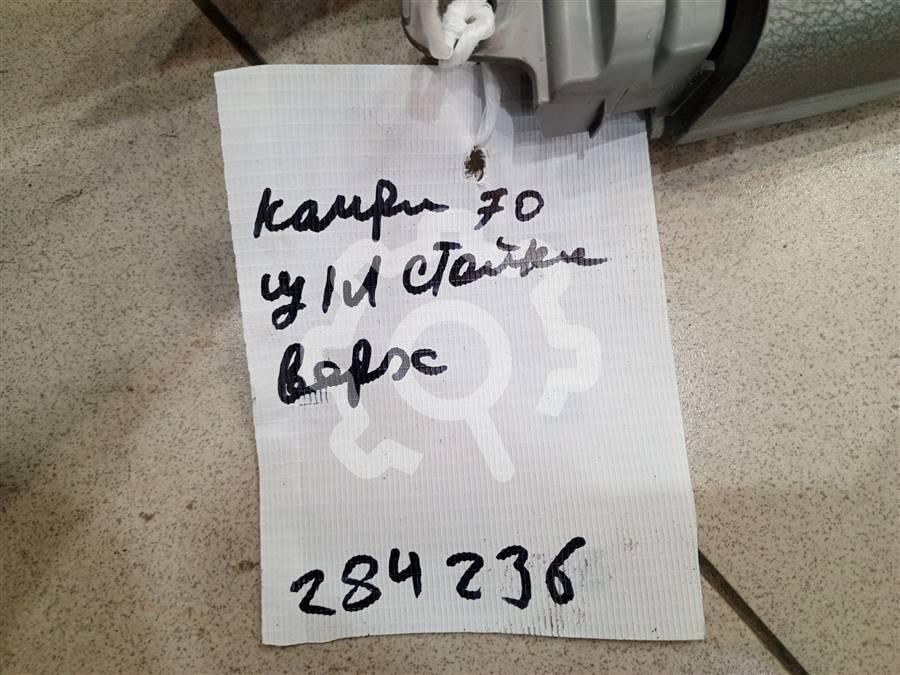 Камри 70
ц/л стойки
Верх
284236